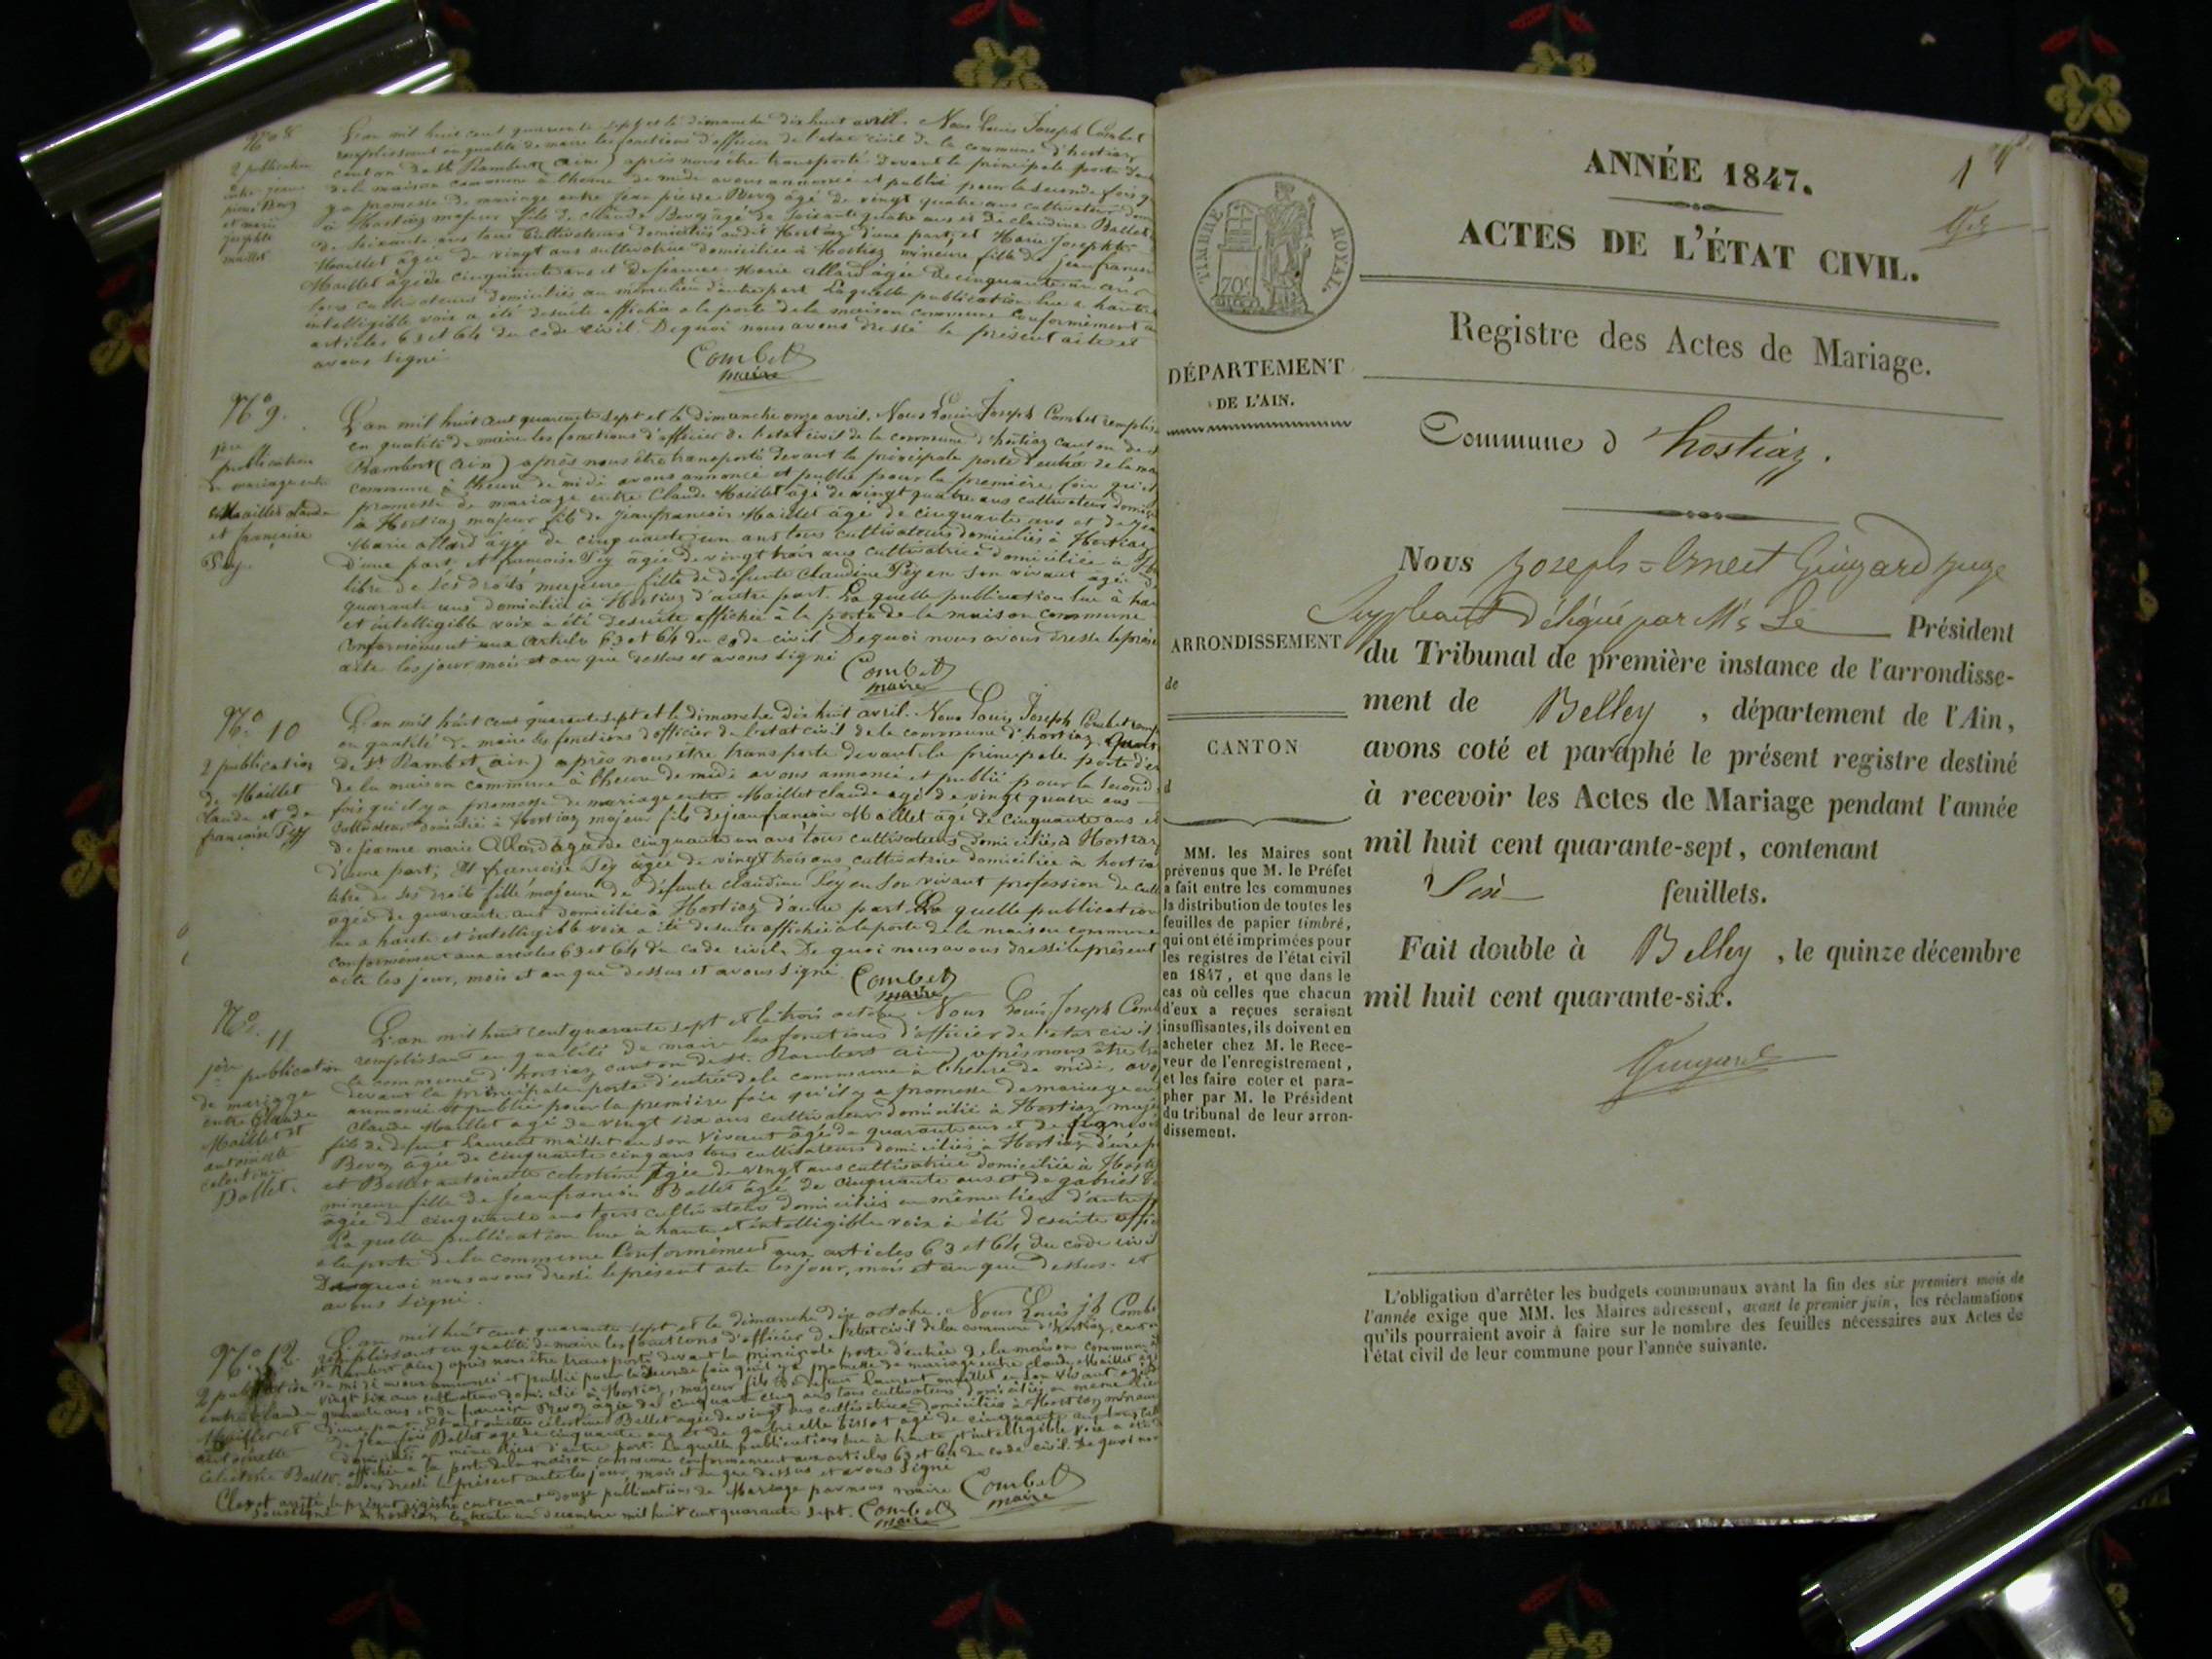 N° 8
2 publication
entre jean
pierre Berg
et marie
josephte
maillet
L'an mil huit cent quarante sept et le dimanche dix huit avril. Nous Louis Joseph Combet
remplissant en qualité de maire les fonctions d'officier de l'etat civil de la commune d'hostiaz
canton de St Rambert (ain) après nous être transporté devant la principale porte d'ent
de la maison commune à l'heure de midi avons annoncé et publié pour la seconde fois q
y a promesse de mariage entre Jean pierre Berg âgé de vingt quatre ans cultivateur dom
à Hostiaz majeur fils de Claude Berg âgé de soixante quatre ans et de claudine Ballet
de soixante ans tous cultivateurs domiciliés audit Hostiaz d'une part, et Marie Josephte
Maillet âgée de vingt ans cultivatrice domiciliée à Hostiaz mineure fille de jean francois
Maillet âgé de cinquante ans et de jeanne Marie allard âgée de cinquante un ans
tous cultivateurs domiciliés au même lieu d'autre part. Laquelle publication lue à haute
intelligible voix a été desuite affichée à la porte de la maison commune conformément a
articles 63 et 64 du code civil De quoi nous avons dressé le présent acte et
avons signé
Combet
maire
N° 9.
1ère
publication
de mariage entre
Maillet claude
et françoise
Pey
L'an mil huit cent quarante sept et le dimanche onze avril. Nous Louis Joseph Combet remplis
en qualité de maire les fonctions d'officier de l'etat civil de la commune d'hostiaz canton de S
Rambert (ain) après nous être transporté devant la principale porte d'entrée de la ma
commune à l'heure de midi avons annoncé et publié pour la première fois qu'il
promesse de mariage entre Claude Maillet âgé de vingt quatre ans cultivateur domic
à Hostiaz majeur fils de Jean francois Maillet âgé de cinquante ans et de jea
Marie allard âgée de cinquante un ans tous cultivateurs domiciliés à Hostiaz
d'une part et françoise Pey âgée de vingt trois ans cultivatrice domiciliée à
libre de ses droits majeure fille de défunte Claudine Pey en son vivant âgée
quarante ans domiciliée à Hostiaz d'autre part. La quelle publication lue à hau
et intelligible voix a été desuite affichée à la porte de la maison commune
conformément aux articles 63 et 64 du code civil De quoi nous avons dressé le prése
acte les jour, mois et an que dessus et avons signé
Combet
maire
N° 10
2 publication
de Maillet
claude et de
françoise Pey
L'an mil huit cent quarante sept et le dimanche dix huit avril. Nous Louis Joseph Combet remp
en qualité de maire les fonctions d'officier de l'etat civil de la commune d'hostiaz
de St Rambert (ain) après nous être transporté devant la principale porte d'en
de la maison commune à l'heure de midi avons annoncé et publié pour la second
fois qu'il y a promesse de mariage entre Maillet claude agé de vingt quatre ans
cultivateur domicilié à Hostiaz majeur fils de jean françois Maillet âgé de cinquante ans et
de jeanne marie Allard âgée de cinquante un ans tous cultivateurs domiciliés à Hostiaz
d'une part; Et françoise Pey âgée de vingt trois ans cultivatrice domiciliée à hostia
libre de ses droits fille majeure de défunte claudine Pey en son vivant profession de cult
âgée de quarante ans domiciliée à Hostiaz d'autre part. La quelle publication
lue à haute et intelligible voix a été desuite affichée à la porte de la maison commune
conformément aux articles 63 et 64 du code civil. De quoi nous avons dressé le présent
acte les jour, mois et an que dessus et avons signé.
Combet
maire
N°. 11
1ère publication
de mariage
entre Claude
Maillet et
antoinette
celestine
Ballet.
L'an mil huit cent quarante sept et le trois octobre Nous Louis Joseph Comb
remplissant en qualité de maire les fonctions d'officier de l'etat civil
la commune d'hostiaz canton de St. Rambert ain) après nous être tra
devant la principale porte d'entrée de la commune à l'heure de midi, avo
annoncé et publié pour la première fois qu'il y a promesse de mariage en
Claude Maillet agé de vingt six ans cultivateur domicilié à Hostiaz maje
fils de defunt Laurent maillet en son vivant âgé de quarante ans et de
Bevoz âgée de cinquante cinq ans tous cultivateurs domiciliés à Hostiaz d'une p
et Ballet antoinette celestine âgée de vingt ans cultivatrice domiciliée à Hosti
mineure fille de Jean francois Ballet âgé de cinquante ans et de gabriel
âgée de cinquante ans tous cultivateurs domiciliés au même lieu d'autre p
La quelle publication lue à haute et intelligible voix a été desuite affic
à la porte de la commune conformément aux articles 63 et 64 du code civil
De quoi nous avons dressé le présent acte les jour, mois et an que dessus et
avons signé.
N°. 12.
2 publication
entre claude
Maillet et
antoinette
Celestine Ballet
L'an mil huit cent quarante sept et le dimanche dix octobre. Nous Louis jh Combe
remplissant en qualité de maire les fonctions d'officier de l'etat civil de la commune d'hostiaz, canton
St Rambert ain) après nous être transporté devant la principale porte d'entrée de la maison commune
de midi avons annoncé et publié pour la seconde fois qu'il y a promesse de mariage entre claude Maillet
vingt six ans cultivateur domicilié à Hostiaz, majeur fils de defunt Laurent maillet en son vivant agé
quarante ans et de Bevoz âgée de cinquante cinq ans tous cultivateurs domiciliés au même lieu
d'une part. Et antoinette celestine Ballet agée de vingt ans cultivatrice domiciliée à Hostiaz mineure
de jean fois Ballet agé de cinquante ans et de gabrielle agée de cinquante ans tous
domiciliés au même lieu d'autre part. Laquelle publication lue à haute et intelligible voix a été
affichée à la porte de la maison commune conformément aux articles 63 et 64 du code civil. De quoi nou
avons dressé le présent acte les jour mois et an que dessus et avons signé
Combet
maire
Clos et arrêté le présent registre contenant douze publications de Mariage par nous maire
soussigné à hostiaz le trente un decembre mil huit cent quarante sept. Combet
maire
1
ANNÉE 1847.
ACTES DE L'ÉTAT CIVIL.
TIMBRE ROYAL.
70c
Registre des Actes de Mariage.
DÉPARTEMENT
DE L'AIN.
Commune d'hostiaz.
Nous Joseph-Ernest Guigard Juge
Suppléant Délégué par Mr Le Président
ARRONDISSEMENT
de
du Tribunal de première instance de l'arrondisse-
ment de Belley, département de l'Ain,
CANTON
d
avons coté et paraphé le présent registre destiné
à recevoir les Actes de Mariage pendant l'année
mil huit cent quarante-sept, contenant
Six feuillets.
Fait double à Belley, le quinze décembre
mil huit cent quarante-six.
Guigard
MM. les Maires sont
prévenus que M. le Préfet
a fait entre les communes
la distribution de toutes les
feuilles de papier timbré,
qui ont été imprimées pour
les registres de l'état civil
en 1847, et que dans le
cas où celles que chacun
d'eux a reçues seraient
insuffisantes, ils doivent en
acheter chez M. le Rece-
veur de l'enregistrement,
et les faire coter et para-
pher par M. le Président
du tribunal de leur arron-
dissement.
L'obligation d'arrêter les budgets communaux avant la fin des six premiers mois de
l'année exige que MM. les Maires adressent, avant le premier juin, les réclamations
qu'ils pourraient avoir à faire sur le nombre des feuilles nécessaires aux Actes de
l'état civil de leur commune pour l'année suivante.